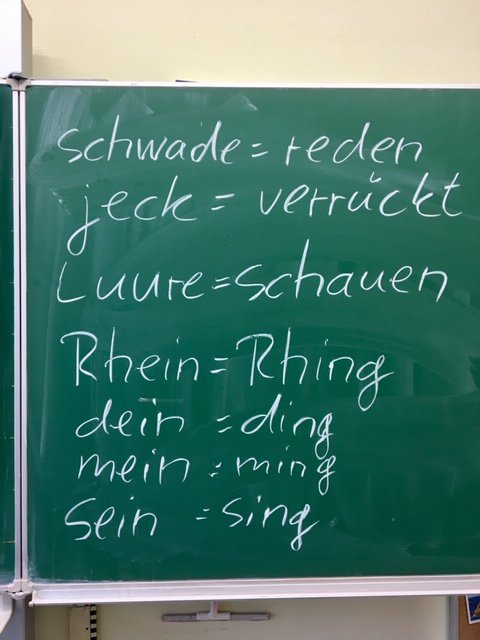 schwade = reden
jeck = verrückt
Luure = schauen
Rhein = Rhing
dein = ding
mein = ming
sein = sing